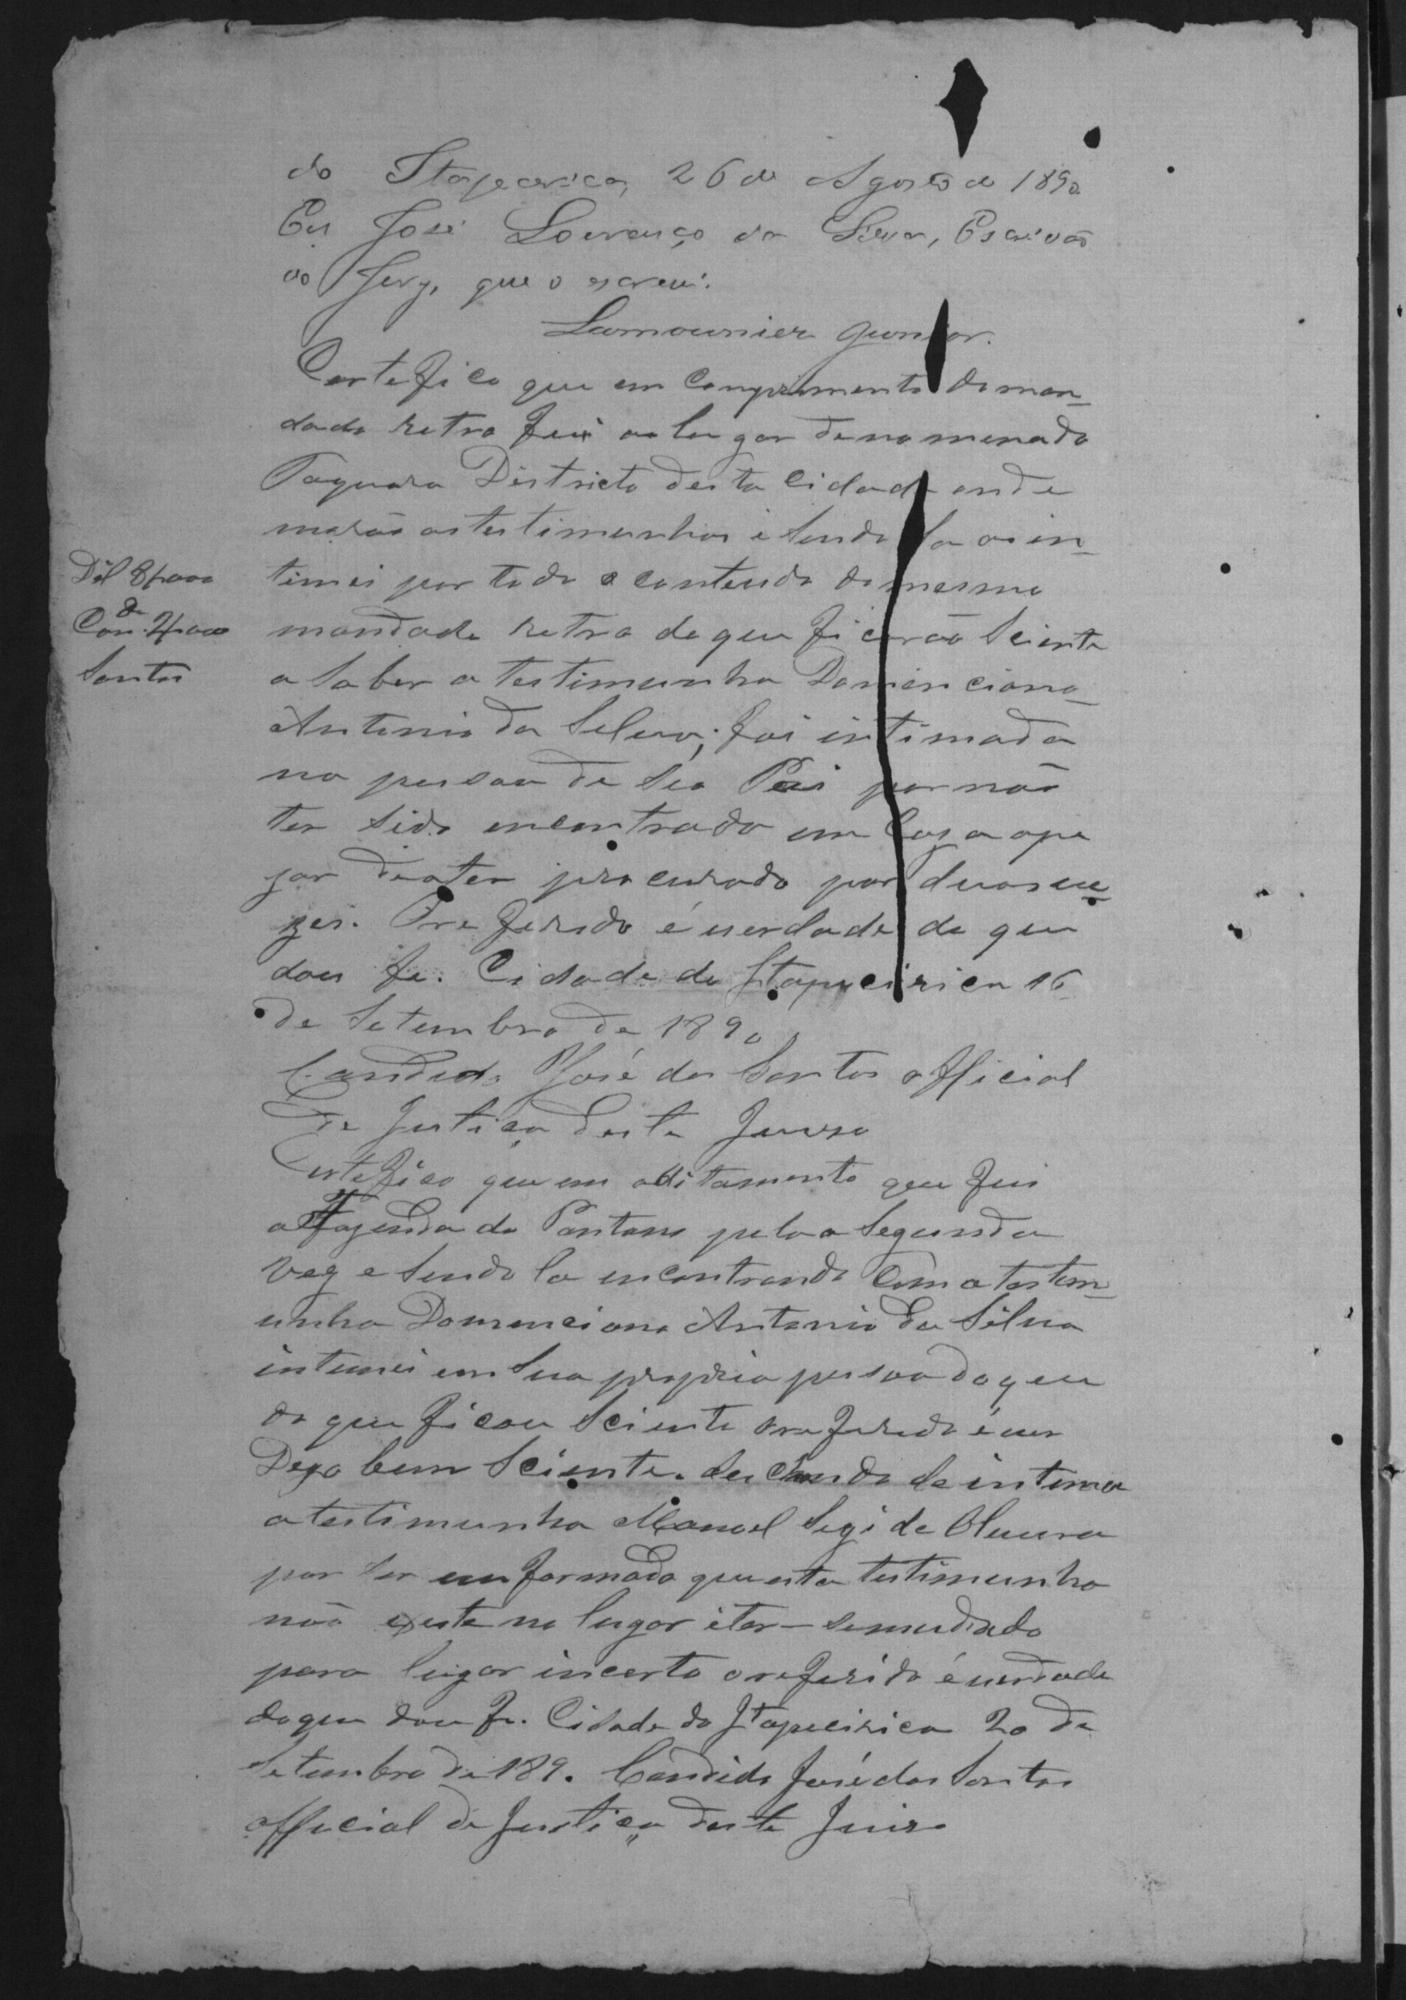 do Itapecerica, 26 de Agosto de 1890
Eu José Lourenço da Silva, Escrivão
do Jury, que o escrevi.
Lamounier Junior.
Certefico que em comprimento do man-
dado retro fui ao lugar denomenado
Taquara Districto desta Cidade onde
morão as testimunhas e sendo la as in-
timei por todo o contendo do mesmo
mandado retro do que ficarão Sciente
a saber a testimunha Domenciano
Antonio da Silva; foi intimada
na pessoa de seo Pai por não
ter sido encontrado em Caza ape
zar de o ter procurado por duas ve-
zes. O referido é verdade de que
dou fe. Cidade do Itapecirica 16
de Setembro de 1890
Candido José dos Santos official
de Justiça deste Juizo
Dil 8$000
Con. 2$000
Santos
Certefico que em aditamento que fui
a Fazenda do Pantano pela segunda
vez e sendo la encontrando com a testem-
unha Domenciano Antonio da Silva
intimei em sua propria pessoa do que
do que ficou Sciente o referido é ver
Dego bem Sciente. deichando de intima
a testimunha Manoel Segi de Oliveira
por ser enformado que esta testimunha
não existe no lugar e ter-se mudado
para lugar incerto o referido é verdade
do que dou fe. Cidade do Itapecirica 20 de
Setembro de 189. Candido José dos Santos
official de Justiça deste Juizo